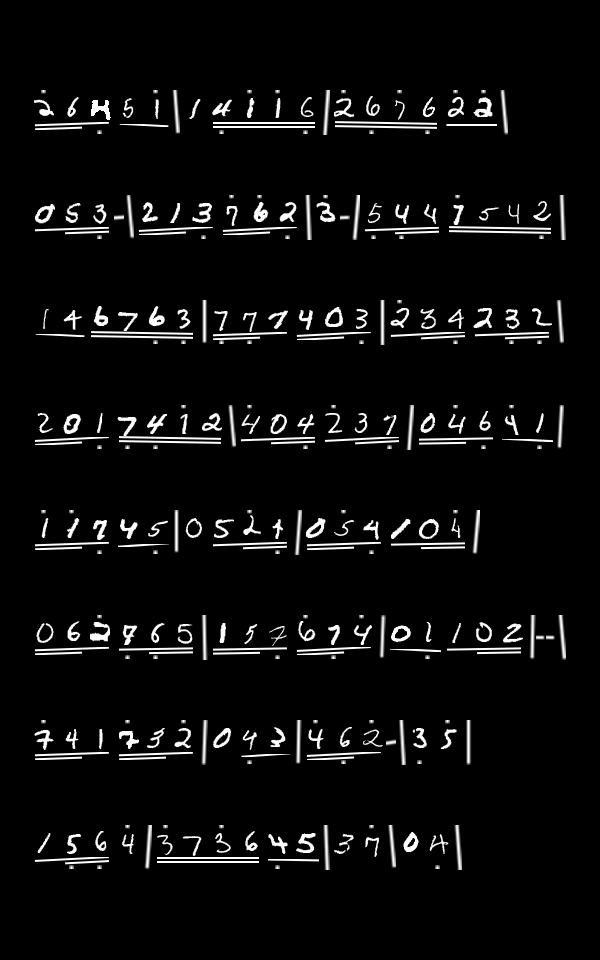 26451|14116|2676622
053-|213762|3-|5447542
146763|777403|234232
2017412|404237|04641
11745|0521|054104
062765|157674|01102|--
741732|043|462-|35
1564|373645|37|04